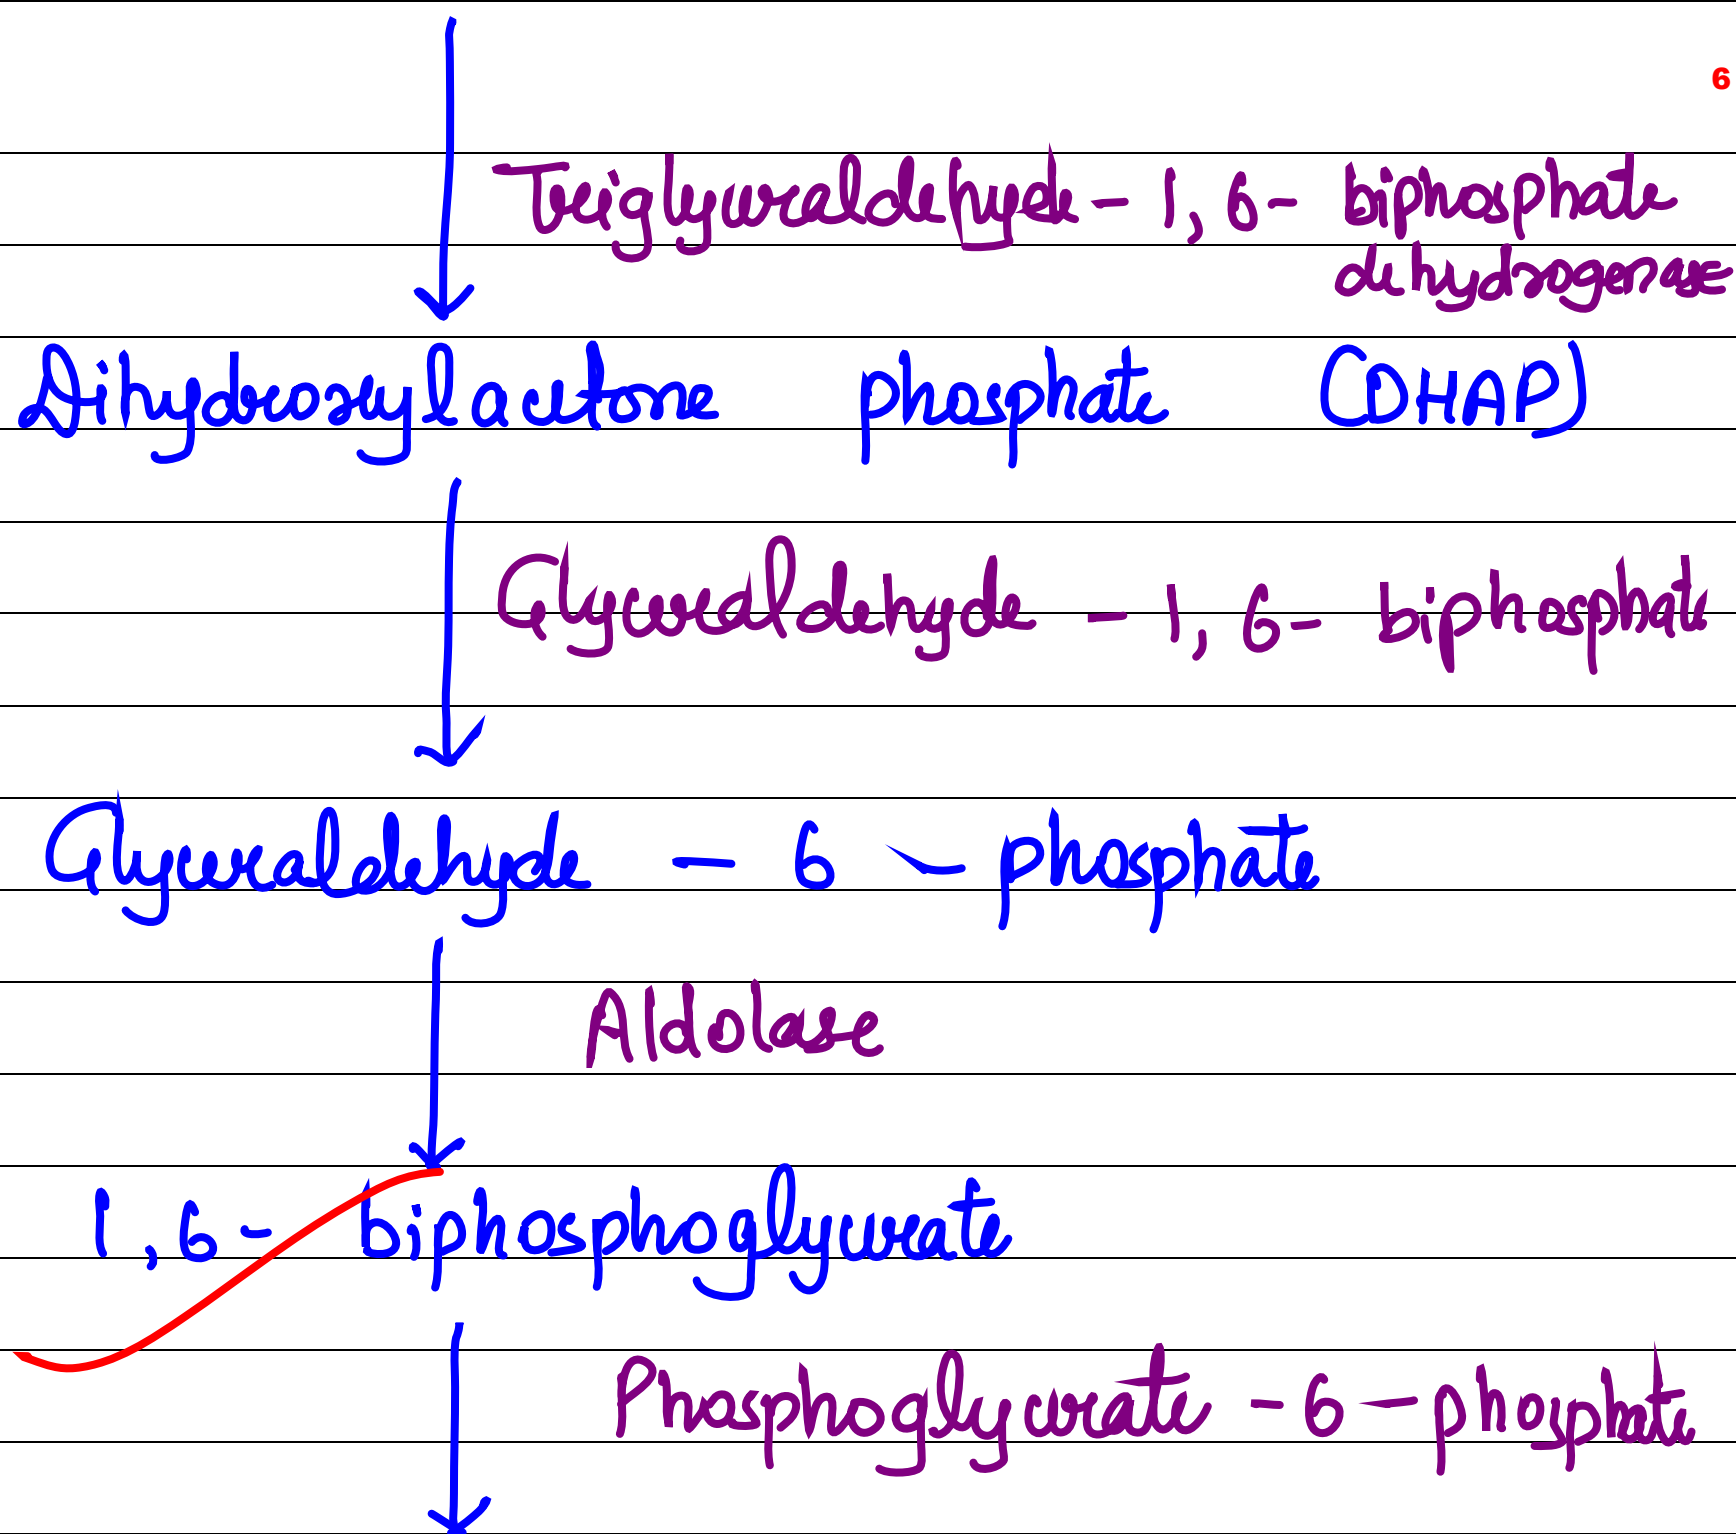 6
Treiglyceraldehyde - 1, 6 - biphosphate
dehydrogenase
Dihydroxylacetone phosphate (DHAP)
Glyceraldehyde - 1, 6 - biphosphate
Glyceraldehyde - 6 - phosphate
Aldolase
1, 6 - biphosphoglycerate
Phosphoglycerate - 6 - phosphate